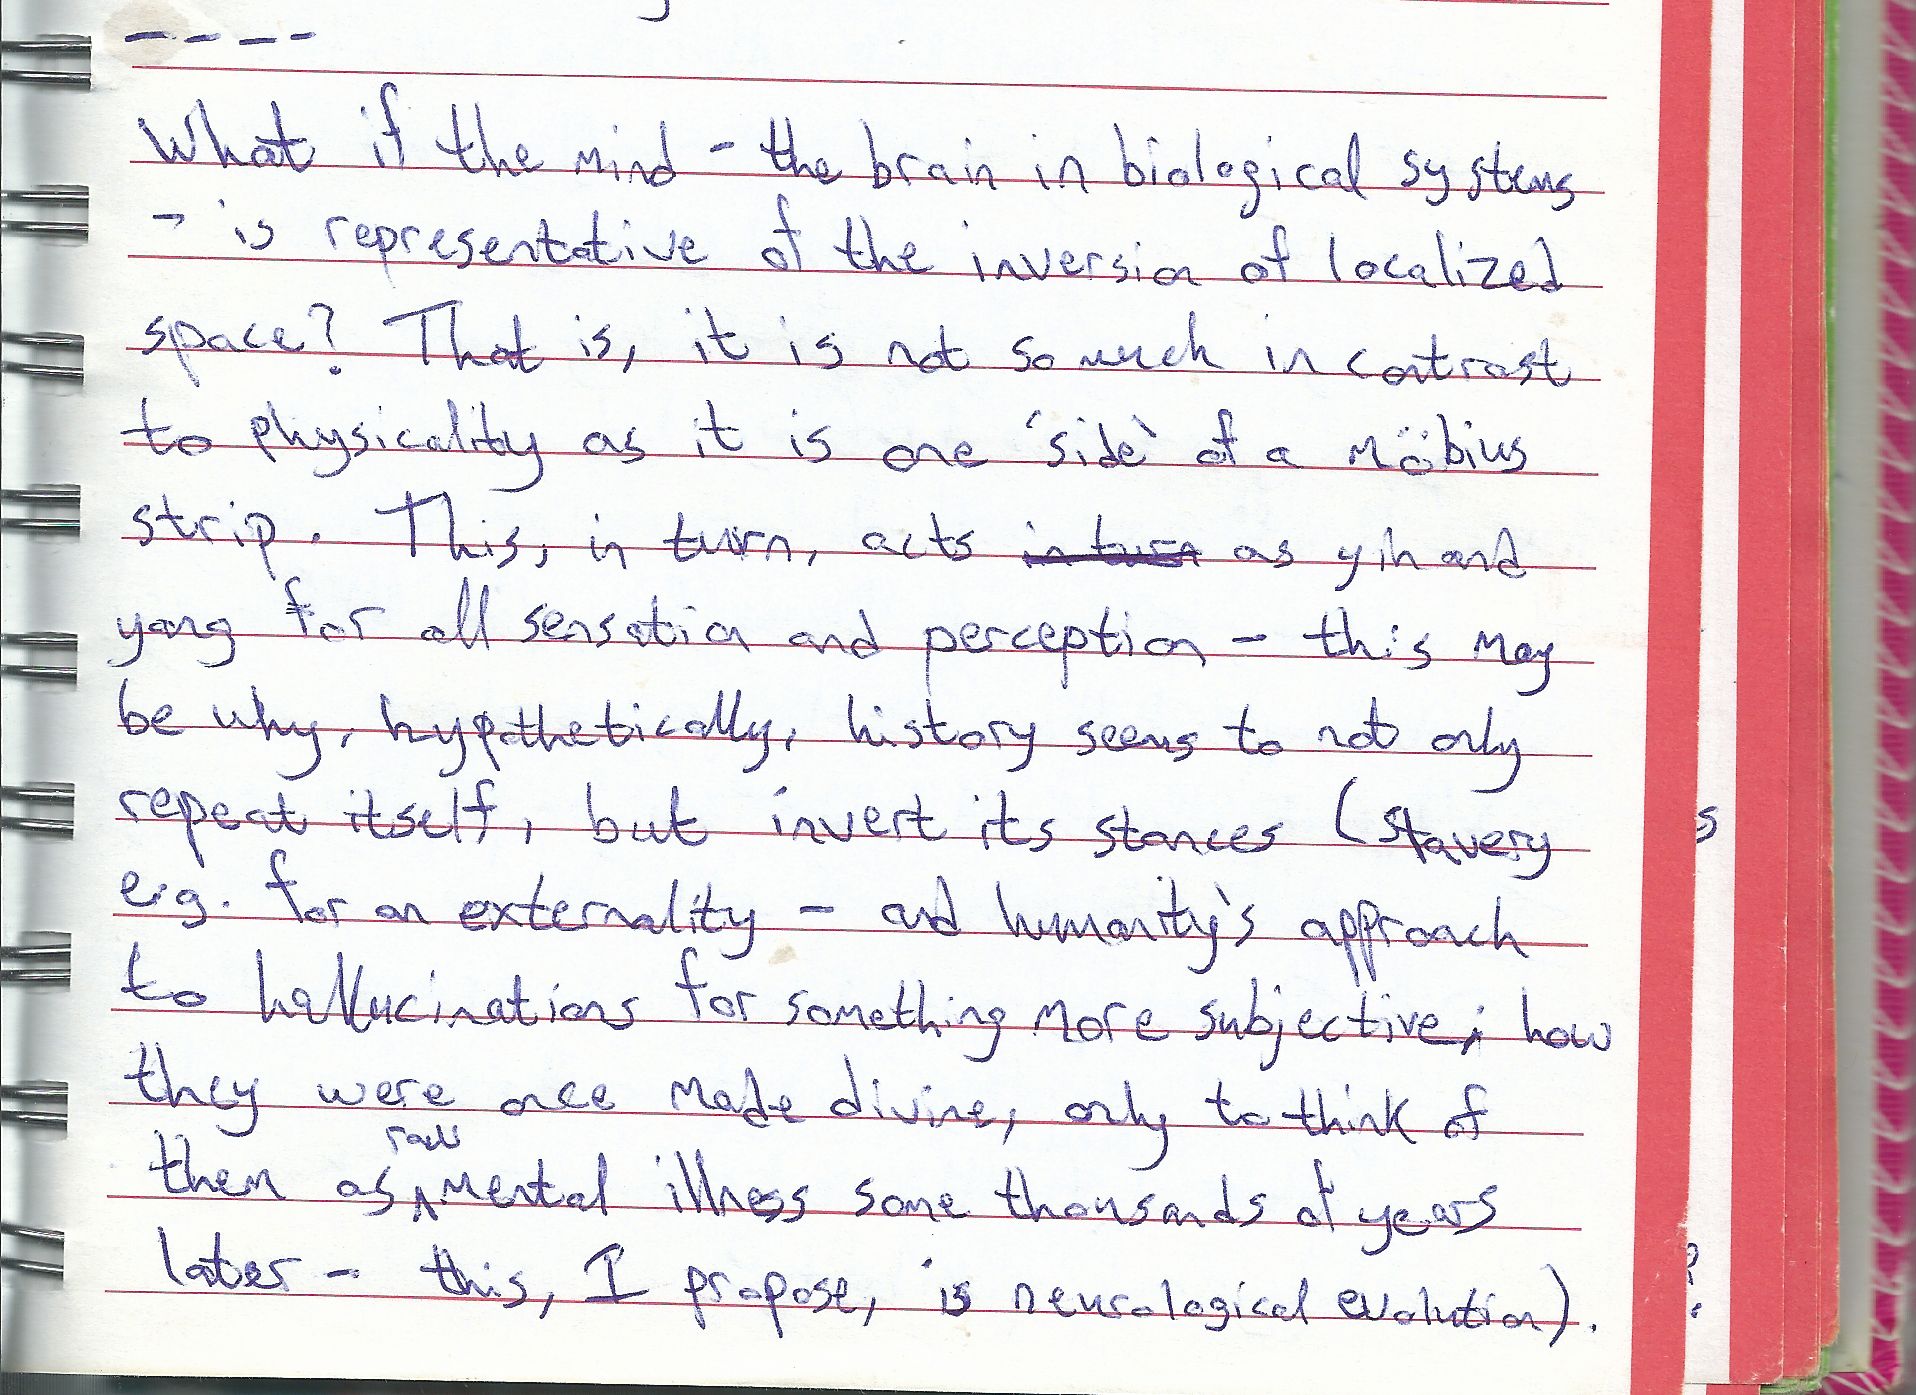 ----
What if the mind - the brain in biological systems
- is representative of the inversion of localized
space? That is, it is not so much in contrast
to physicality as it is one 'side' of a Möbius
strip. This, in turn, acts in turn as yin and
yang for all sensation and perception - this may
be why, hypothetically, history seems to not only
repeat itself, but invert its stances (slavery
e.g. for an externality - and humanity's approach
to hallucinations for something more subjective; how
they were once made divine, only to think of
raw
them as mental illness some thousands of years
later - this, I propose, is neurological evolution).
s
?